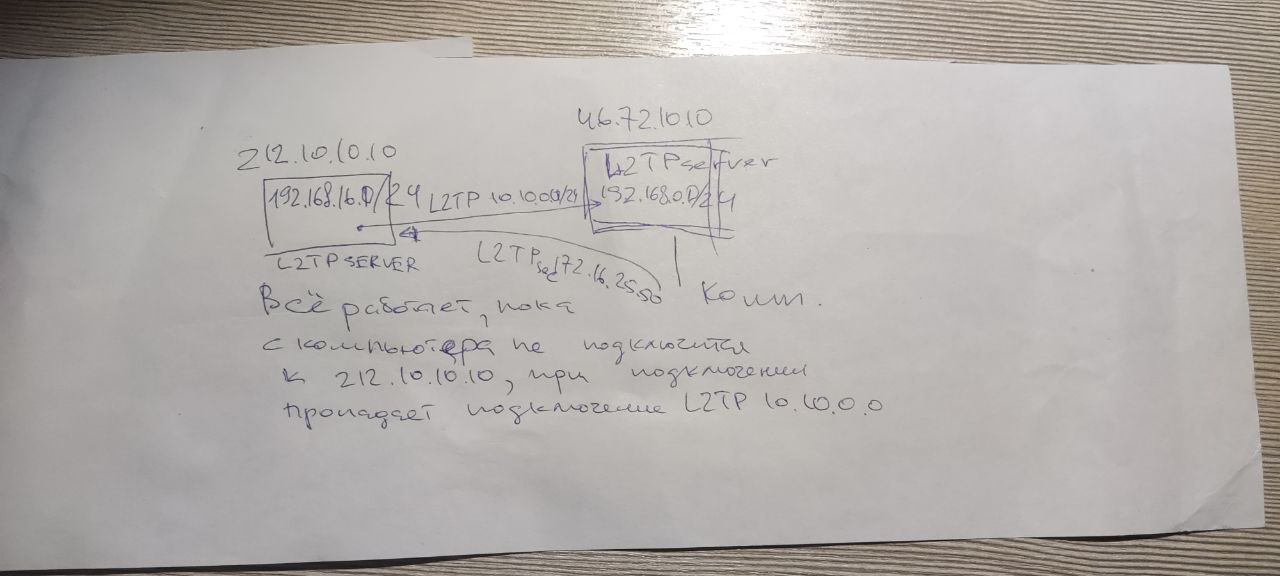 46.72.10.10
212.10.10.10
L2TP server
192.168.16.0/24
L2TP 10.10.0.0/24
192.168.0.0/24
L2TP SERVER
L2TP
172.16.25.50
Комп.
Всё работает, пока
с компьютера не подключится
к 212.10.10.10, при подключении
пропадает подключение L2TP 10.10.0.0